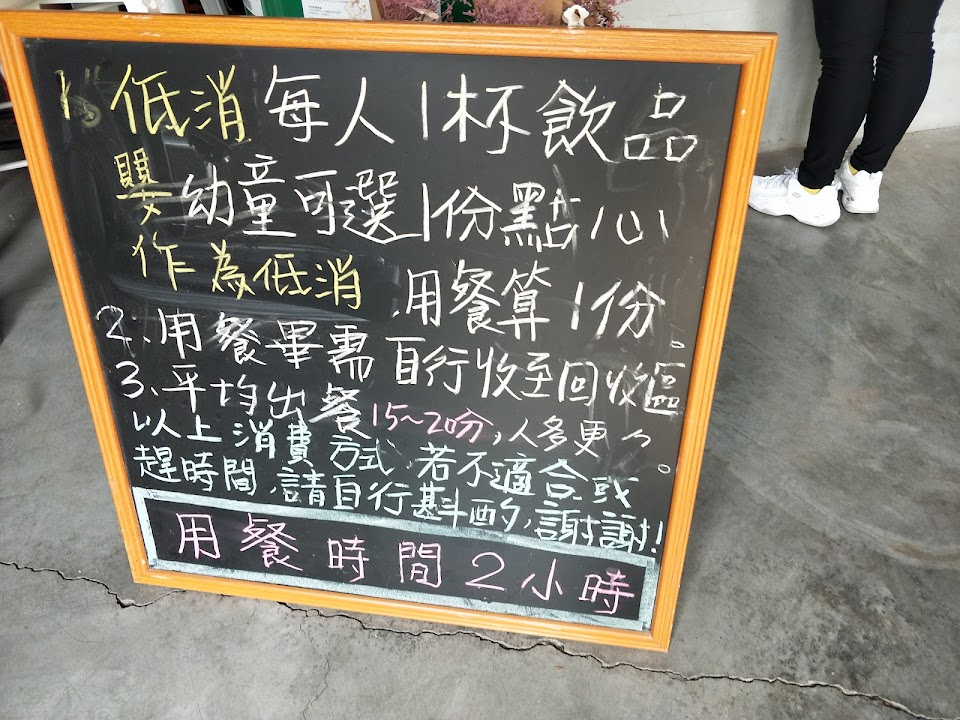 1. 低消每人1杯飲品
嬰幼童可選1份點心
作為低消 用餐算1份
2、用餐畢需自行收至回收區。
3、平均出餐15~20分,人多更久。
以上消費方式,若不適合或
趕時間,請自行斟酌,謝謝!
用餐時間2小時